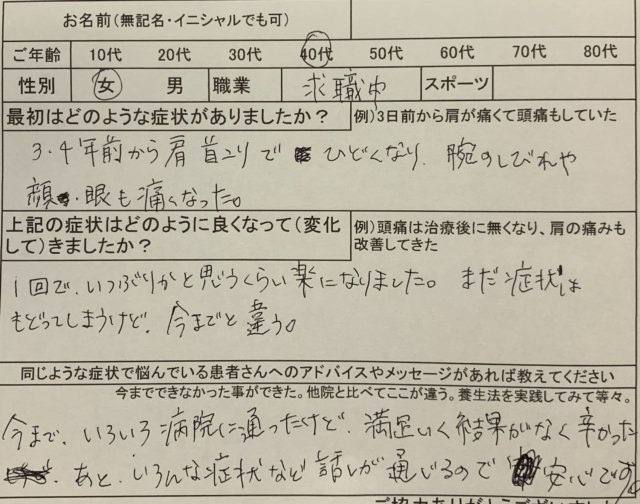 お名前(無記名・イニシャルでも可)
ご年齢 10代 20代 30代 40代 50代 60代 70代 80代
性別 女 男 職業 求職中 スポーツ
最初はどのような症状がありましたか? 例)3日前から肩が痛くて頭痛もしていた
3・4年前から肩首こりで ひどくなり、腕のしびれや
顔・眼も痛くなった。
上記の症状はどのように良くなって(変化 例)頭痛は治療後に無くなり、肩の痛みも
して)きましたか? 改善してきた
1回で、いつぶりかと思うくらい楽になりました。まだ症状は
もどってしまうけど、今までと違う。
同じような症状で悩んでいる患者さんへのアドバイスやメッセージがあれば教えてください
今までできなかった事ができた。他院と比べてここが違う。養生法を実践してみて等々。
今まで、いろいろ病院に通ったけど、満足いく結果がなく辛かった
あと、いろんな症状など話しが通じるので 安心です。